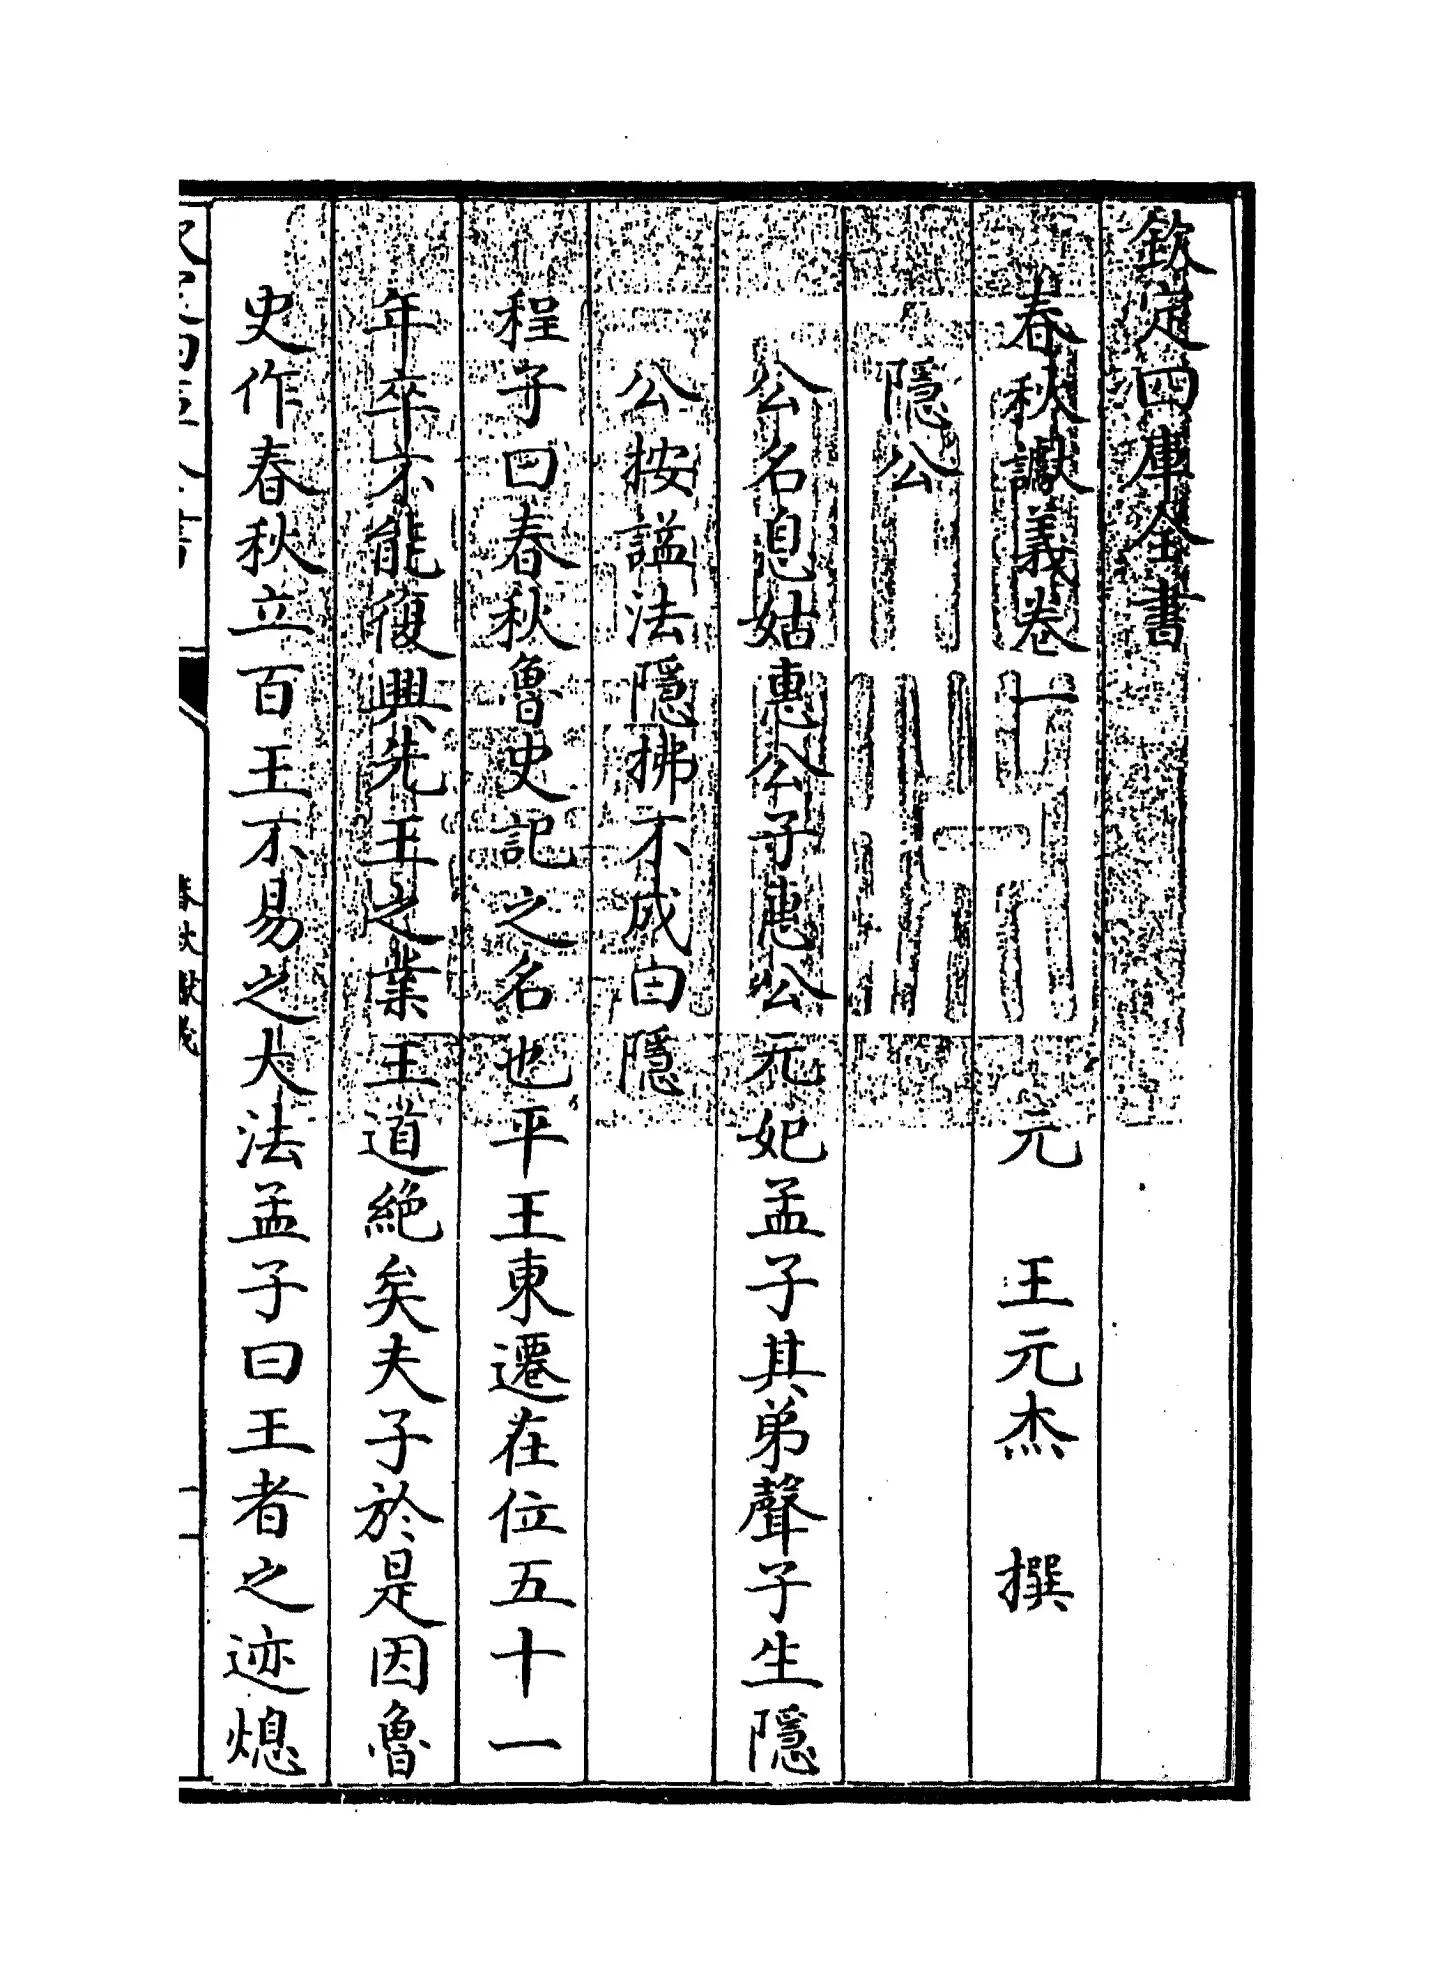 欽定四庫全書
春秋讞義卷一 元 王元杰 撰
隱公
公名息姑惠公子惠公元妃孟子其弟聲子生隱
公按諡法隱拂不成曰隱
程子曰春秋魯史記之名也平王東遷在位五十一
年卒不能復興先王之業王道絶矣夫子於是因魯
史作春秋立百王不易之大法孟子曰王者之迹熄